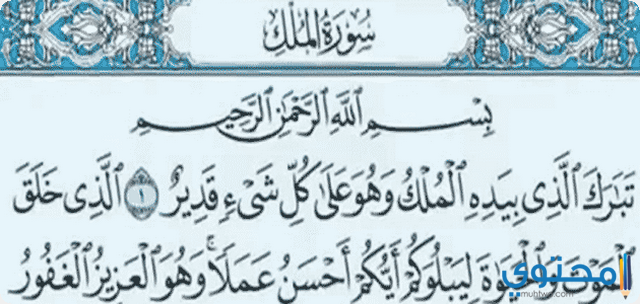 سُورَةُ المُلْكِ
بِسْمِ اللَّهِ الرَّحْمَٰنِ الرَّحِيمِ
تَبَارَكَ الَّذِي بِيَدِهِ الْمُلْكُ وَهُوَ عَلَىٰ كُلِّ شَيْءٍ قَدِيرٌ ١ الَّذِي خَلَقَ
الْمَوْتَ وَالْحَيَاةَ لِيَبْلُوَكُمْ أَيُّكُمْ أَحْسَنُ عَمَلًا ۚ وَهُوَ الْعَزِيزُ الْغَفُورُ
المحتوى
muhtwa.com